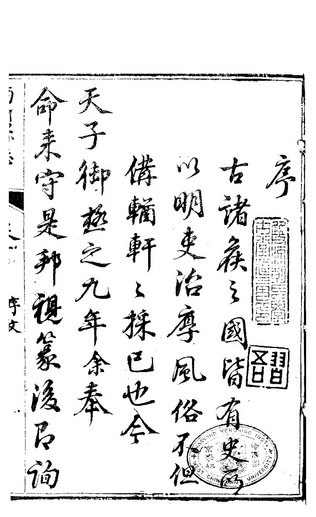 序
古諸矦之國皆有史所
以明吏治厚風俗不但
備輶軒之採已也今
天子御極之九年余奉
命来守是邦視篆後即詢
序文